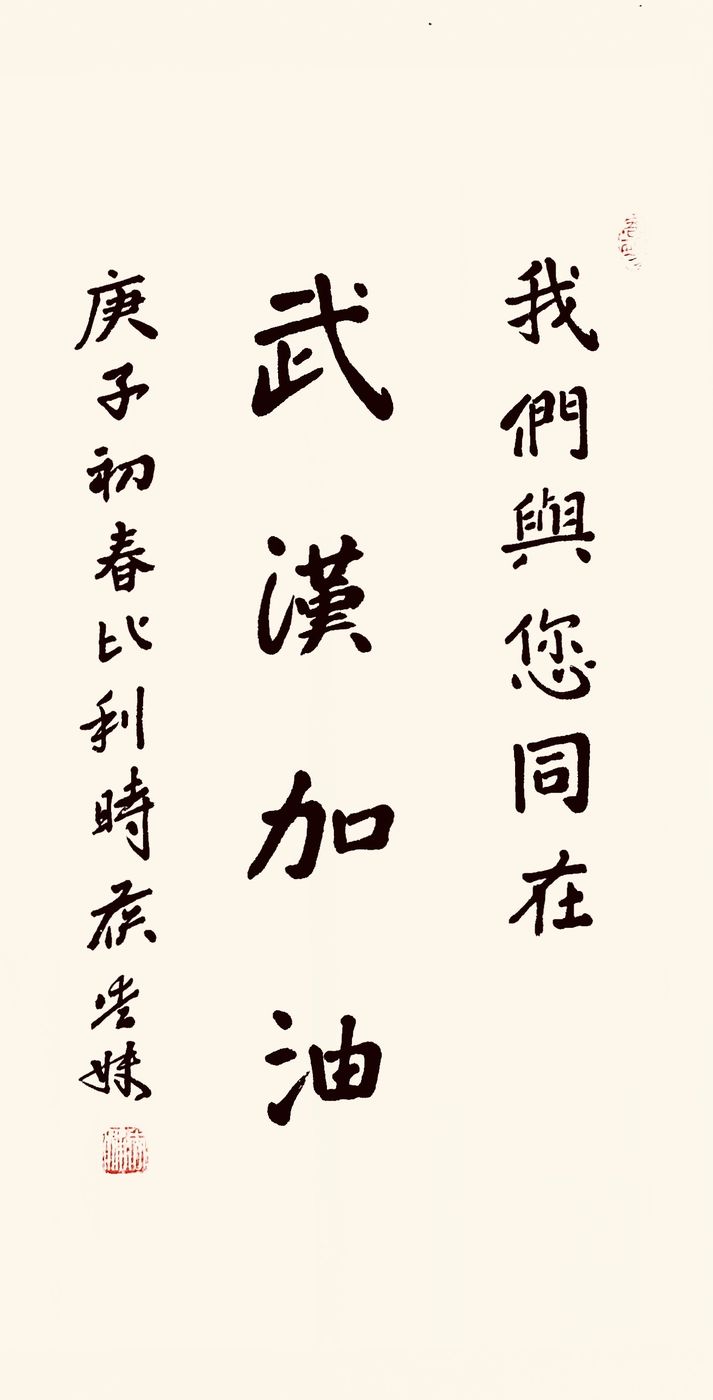 我們與您同在
武漢加油
庚子初春比利時侯雪妹